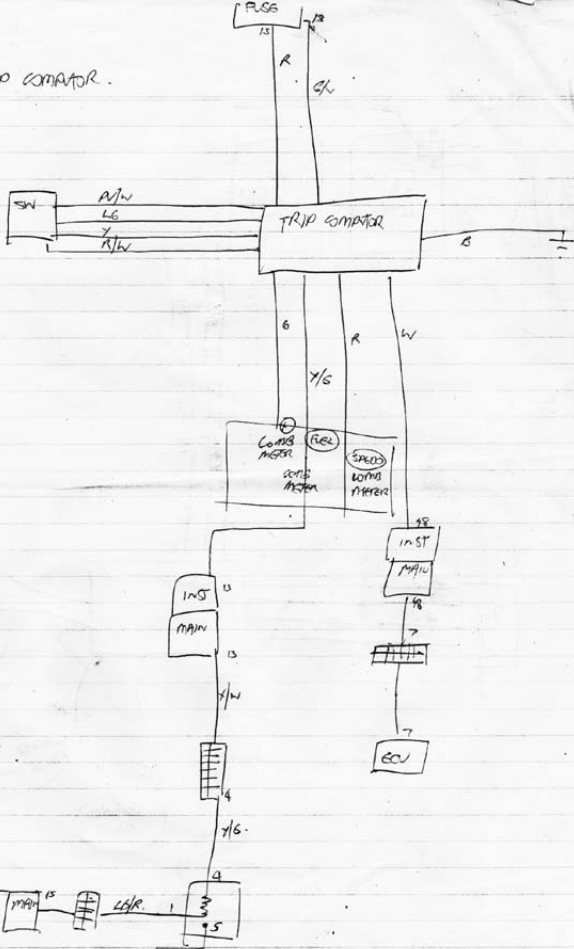 FUSE
15
18
R
G/W
COMPATOR.
SW
LG
Y
R/W
TRIP COMPATOR
B
G
Y/G
R
W
COMB
METER
FUEL
COMB
METER
SPEEDO
COMB
METER
48
INST
MAIN
48
7
7
ECU
INST
13
MAIN
13
Y/W
4
Y/G.
4
MAIN
15
LG/R.
1
5